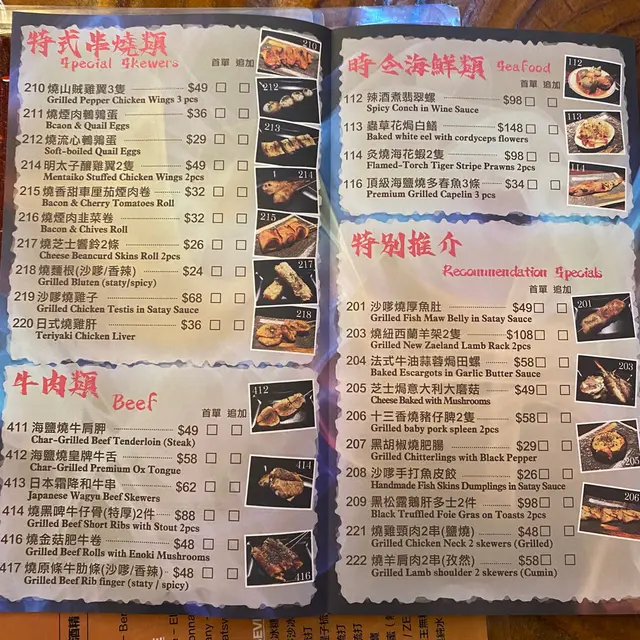 特式串燒類
Special Skewers
首單 追加
210 燒山賊雞翼3隻 $49
Grilled Pepper Chicken Wings 3 pcs
211 燒煙肉鵪鶉蛋 $36
Bcaon & Quail Eggs
212 燒流心鵪鶉蛋 $29
Soft-boiled Quail Eggs
214 明太子釀雞翼2隻 $49
Mentaiko Stuffed Chicken Wings 2pcs
215 燒香甜車厘茄煙肉卷 $32
Bacon & Cherry Tomatoes Roll
216 燒煙肉韭菜卷 $32
Bacon & Chives Roll
217 燒芝士響鈴2條 $26
Cheese Beancurd Skins Roll 2pcs
218 燒麵根(沙嗲/香辣) $24
Grilled Bluten (staty/spicy)
219 沙嗲燒雞子 $68
Grilled Chicken Testis in Satay Sauce
220 日式燒雞肝 $36
Teriyaki Chicken Liver
210
212
213
214
215
217
218
牛肉類
Beef
首單 追加
411 海鹽燒牛肩胛 $49
Char-Grilled Beef Tenderloin (Steak)
412 海鹽燒皇牌牛舌 $58
Char-Grilled Premium Ox Tongue
413 日本霜降和牛串 $62
Japanese Wagyu Beef Skewers
414 燒黑啤牛仔骨(特厚)2件 $88
Grilled Beef Short Ribs with Stout 2pcs
416 燒金菇肥牛卷 $48
Grilled Beef Rolls with Enoki Mushrooms
417 燒原條牛肋條(沙嗲/香辣) $48
Grilled Beef Rib finger (staty / spicy)
412
414
416
時令海鮮類 Seafood
首單 追加
112 辣酒煮翡翠螺 $98
Spicy Conch in Wine Sauce
113 蟲草花焗白鱔 $148
Baked white eel with cordyceps flowers
114 炙燒海花蝦2隻 $98
Flamed-Torch Tiger Stripe Prawns 2pcs
116 頂級海鹽燒多春魚3條 $34
Premium Grilled Capelin 3 pcs
112
113
114
特別推介
Recommendation Specials
首單 追加
201 沙嗲燒厚魚肚 $49
Grilled Fish Maw Belly in Satay Sauce
203 燒紐西蘭羊架2隻 $108
Grilled New Zaeland Lamb Rack 2pcs
204 法式牛油蒜蓉焗田螺 $58
Baked Escargots in Garlic Butter Sauce
205 芝士焗意大利大磨菇 $49
Cheese Baked with Mushrooms
206 十三香燒豬仔脾2隻 $58
Grilled baby pork spleen 2pcs
207 黑胡椒燒肥腸 $29
Grilled Chitterlings with Black Pepper
208 沙嗲手打魚皮餃 $26
Handmade Fish Skins Dumplings in Satay Sauce
209 黑松露鵝肝多士2件 $98
Black Truffled Foie Gras on Toasts 2pcs
221 燒雞頸肉2串(鹽燒) $48
Grilled Chicken Neck 2 skewers (Grilled)
222 燒羊肩肉2串(孜然) $58
Grilled Lamb shoulder 2 skewers (Cumin)
201
203
205
206